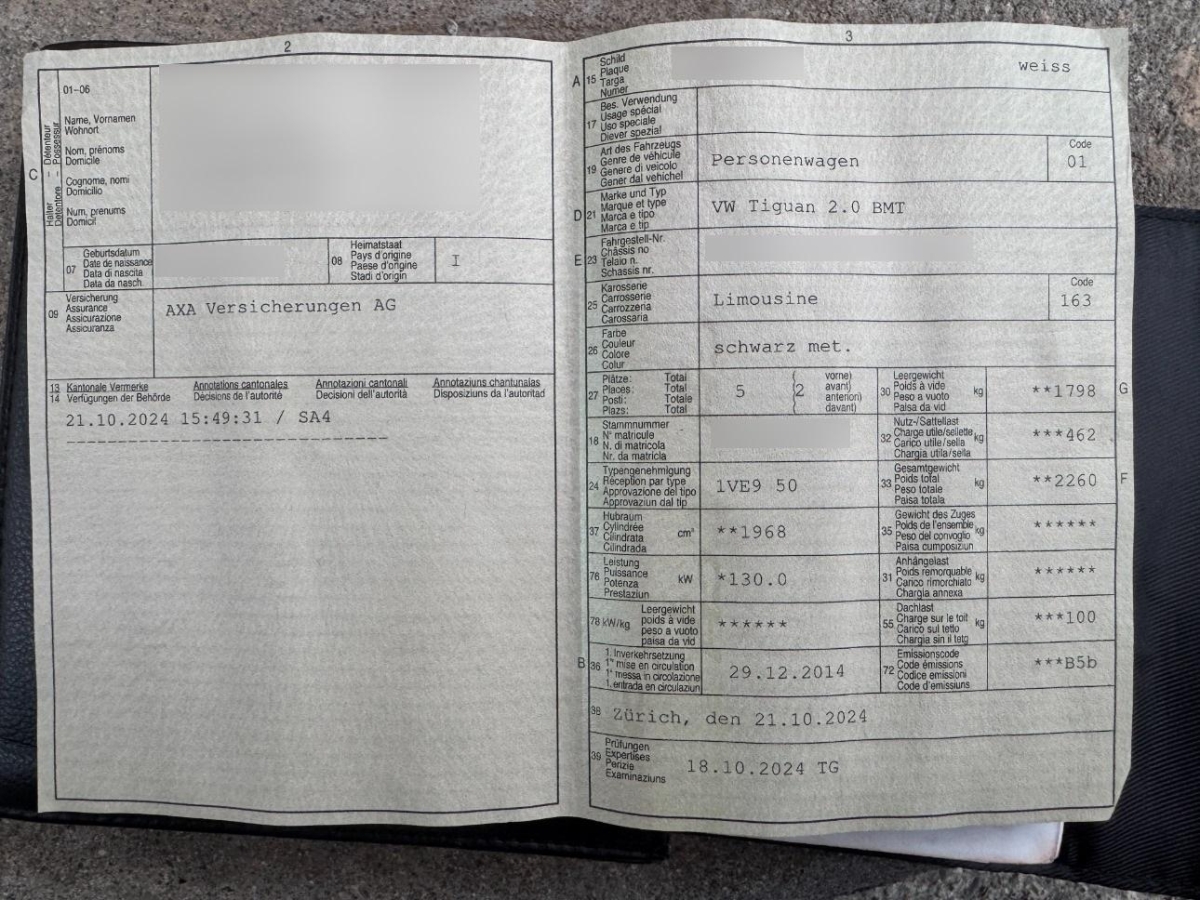 2
01-06
Halter – Détenteur
Detentore – Possessur
C
Name, Vornamen
Wohnort
Nom, prénoms
Domicile
Cognome, nomi
Domicilio
Num, prenums
Domicil
07
Geburtsdatum
Date de naissance
Data di nascita
Data da nasch.
08
Heimatstaat
Pays d'origine
Paese d'origine
Stadi d'origin
I
09
Versicherung
Assurance
Assicurazione
Assicuranza
AXA Versicherungen AG
13 Kantonale Vermerke Annotations cantonales Annotazioni cantonali Annotaziuns chantunalas
14 Verfügungen der Behörde Décisions de l'autorité Decisioni dell'autorità Disposiziuns da l'autoritad
21.10.2024 15:49:31 / SA4
3
A 15
Schild
Plaque
Targa
Numer
weiss
17
Bes. Verwendung
Usage spécial
Uso speciale
Diever spezial
19
Art des Fahrzeugs
Genre de véhicule
Genere di veicolo
Gener dal vehichel
Personenwagen
Code
01
D 21
Marke und Typ
Marque et type
Marca e tipo
Marca e tip
VW Tiguan 2.0 BMT
E 23
Fahrgestell-Nr.
Châssis no
Telaio n.
Schassis nr.
25
Karosserie
Carrosserie
Carrozzeria
Carossaria
Limousine
Code
163
26
Farbe
Couleur
Colore
Colur
schwarz met.
27
Plätze: Total
Places: Total
Posti: Totale
Plazs: Total
5 (2
vorne)
avant)
anteriori)
davant)
30
Leergewicht
Poids à vide
Peso a vuoto
Paisa da vid
kg
**1798
G
18
Stammnummer
N° matricule
N. di matricola
Nr. da matricla
32
Nutz-/Sattellast
Charge utile/sellette
Carico utile/sella
Chargia utila/sella
kg
***462
24
Typengenehmigung
Réception par type
Approvazione del tipo
Approvaziun dal tip
1VE9 50
33
Gesamtgewicht
Poids total
Peso totale
Paisa totala
kg
**2260
F
37
Hubraum
Cylindrée
Cilindrata
Cilindrada
cm³
**1968
35
Gewicht des Zuges
Poids de l'ensemble
Peso del convoglio
Paisa cumposiziun
kg
******
76
Leistung
Puissance
Potenza
Prestaziun
kW
*130.0
31
Anhängelast
Poids remorquable
Carico rimorchiato
Chargia annexa
kg
******
78 kW/kg
Leergewicht
poids à vide
peso a vuoto
paisa da vid
******
55
Dachlast
Charge sur le toit
Carico sul tetto
Chargia sin il tetg
kg
***100
B 36
1. Inverkehrsetzung
1re mise en circulation
1a messa in circolazione
1. entrada en circulaziun
29.12.2014
72
Emissionscode
Code émissions
Codice emissioni
Code d'emissiuns
***B5b
38
Zürich, den 21.10.2024
39
Prüfungen
Expertises
Perizia
Examinaziuns
18.10.2024 TG